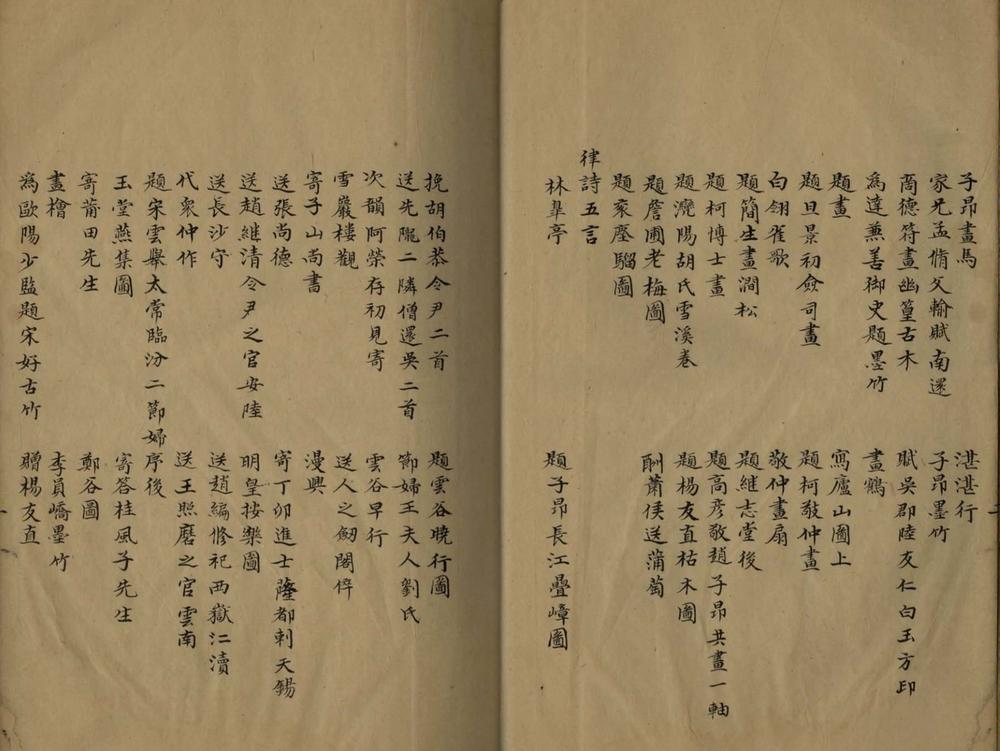 子昂畫馬
湛湛行
家兄孟脩父輸賦南還
子昂墨竹
商德符畫幽篁古木
賦吳郡陸友仁白玉方印
為達兼善御史題墨竹
畫鶴
題畫
寫廬山圖上
題旦景初僉司畫
題柯敬仲畫
白翎雀歌
敬仲畫扇
題簡生畫澗松
題維志堂後
題柯博士畫
題高彥敬趙子昂共畫一軸
題灤陽胡氏雪溪卷
題楊友直枯木圖
題詹圃老梅圖
酬蕭侯送蒲萄
題衮塵騮圖
律詩五言
林皐亭
題子昂長江疊嶂圖
挽胡伯恭令尹二首
題雲谷曉行圖
送先隴二隣僧還吳二首
節婦王夫人劉氏
次韻阿榮存初見寄
雲谷早行
雪巖樓觀
送人之劒閣倅
寄子山尚書
漫興
送張尚德
寄丁卯進士薩都剌天錫
送趙継清令尹之官安陸
明皇按樂圖
送長沙守
送趙編修祀西嶽江瀆
代衆仲作
送王照磨之官雲南
題宋雲舉太常臨汾二節婦序後
玉堂燕集圖
寄答桂風子先生
寄莆田先生
鄭谷圖
畫檜
李員嶠墨竹
為歐陽少監題宋好古竹
贈楊友直